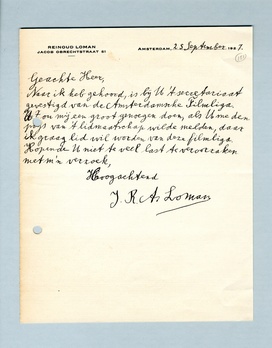 REINOUD LOMAN
JACOB OBRECHTSTRAAT 51
AMSTERDAM, 25 September 1927.
Geachte Heer,
Naar ik heb gehoord, is bij U 't secretariaat
gevestigd van de Amsterdamsche Filmliga.
U zou mij een groot genoegen doen, als U me den
prijs van 't lidmaatschap wilde melden, daar
ik graag lid wil worden van deze filmliga.
Hopende U niet te veel last te veroorzaken
met m'n verzoek,
Hoogachtend
J. R. A. Loman